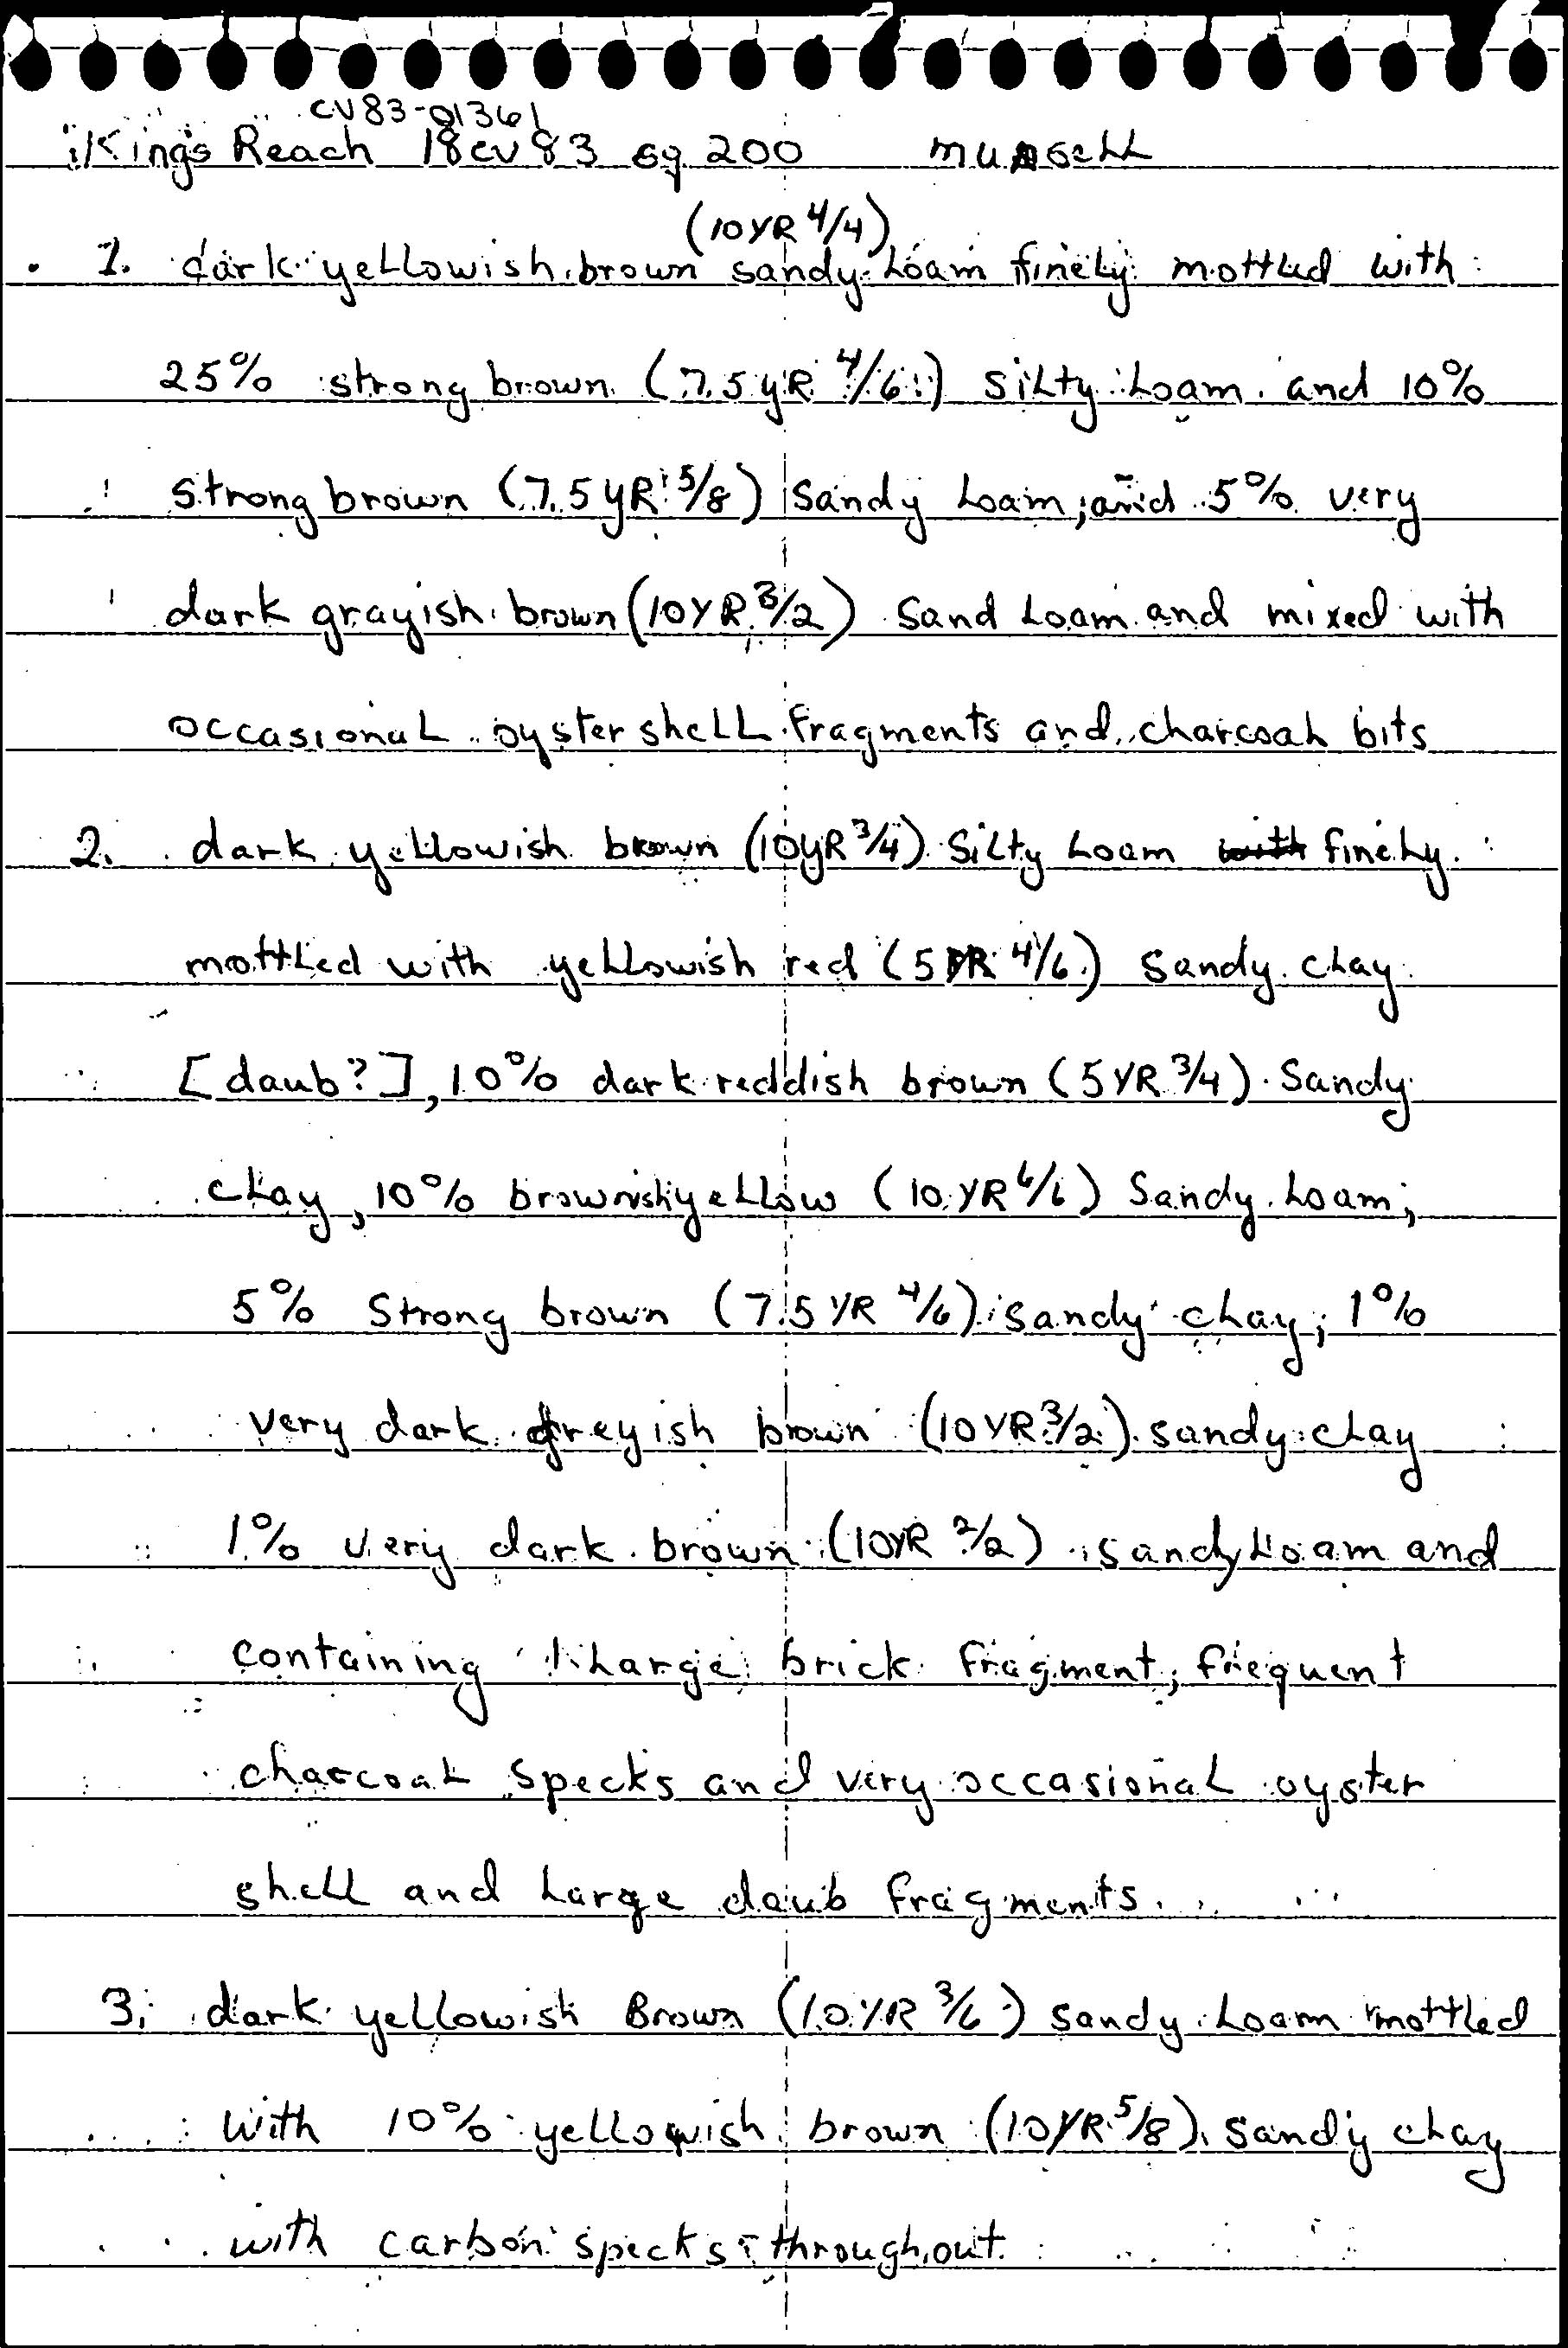 CV83-01361
King's Reach 18CV83 sq 200 munsell
(10YR 4/4)
1. dark yellowish brown sandy Loam finely mottled with
25% strong brown (7.5YR 4/6) silty Loam and 10%
strong brown (7.5YR 5/8) Sandy Loam; and 5% very
dark grayish brown (10YR 3/2) Sand Loam and mixed with
occasional oyster shell fragments and charcoal bits
2. dark yellowish brown (10YR 3/4) Silty Loam with finely
mottled with yellowish red (5YR 4/6) Sandy clay
[daub?], 10% dark reddish brown (5YR 3/4) Sandy
clay, 10% brownish yellow (10YR 6/6) Sandy Loam;
5% Strong brown (7.5YR 4/6) sandy clay; 1%
very dark greyish brown (10YR 3/2) sandy clay
1% very dark brown (10YR 2/2) sandy Loam and
containing 1 large brick fragment, frequent
charcoal specks and very occasional oyster
shell and large daub fragments.
3. dark yellowish Brown (10YR 3/6) sandy Loam mottled
with 10% yellowish brown (10YR 5/8) sandy clay
with carbon specks throughout